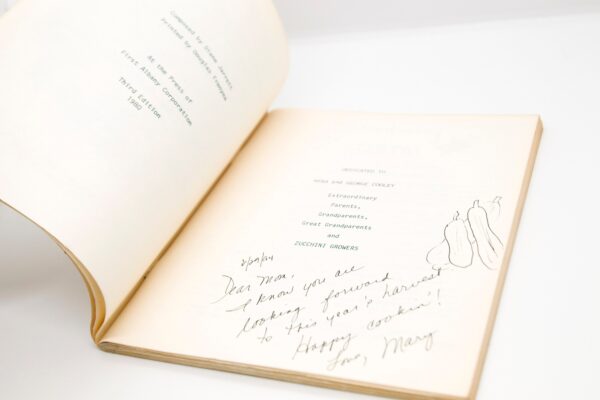 Composed by Diane Jarrett
Printed by Douglas
At the Press of
First Albany Corporation
Third Edition
1980
DEDICATED TO
and GEORGE COOLEY
Extraordinary
Parents,
Grandparents,
Great Grandparents
and
ZUCCHINI GROWERS
Dear Mom,
I know you are
looking forward
to this year's harvest
Happy cookin'!
Love, Mary